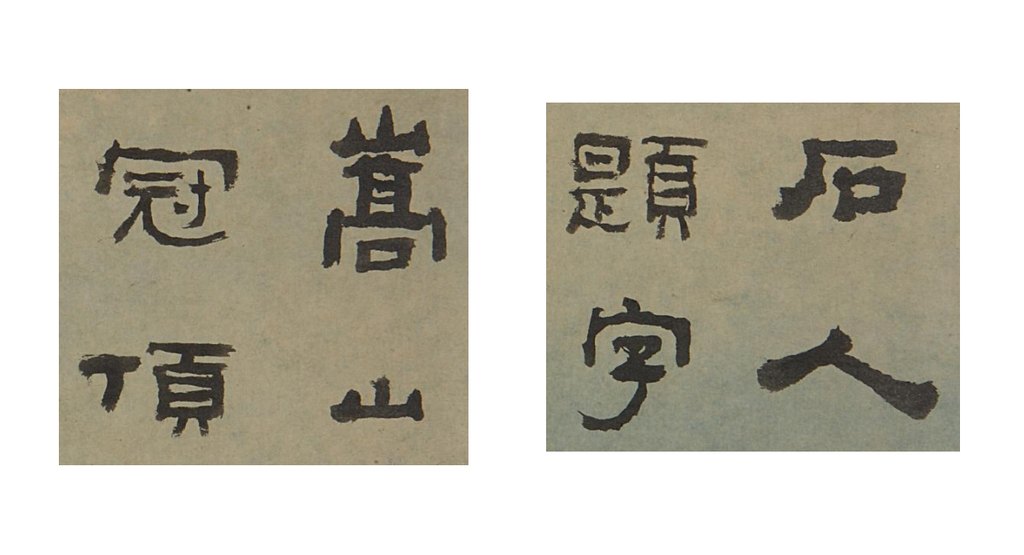 石人
題字
嵩山
冠頂